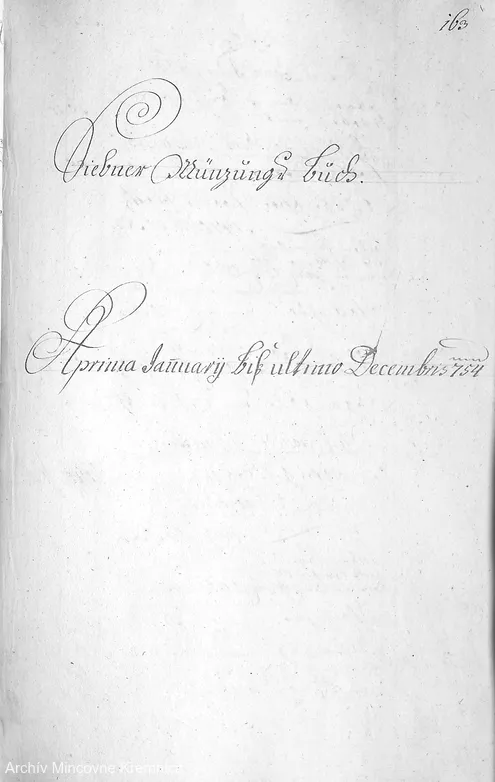 163
Siebner Münzungs Buch.
A prima Januarÿ biß ultimo Decembris 754
Archív Mincovne Kremnica